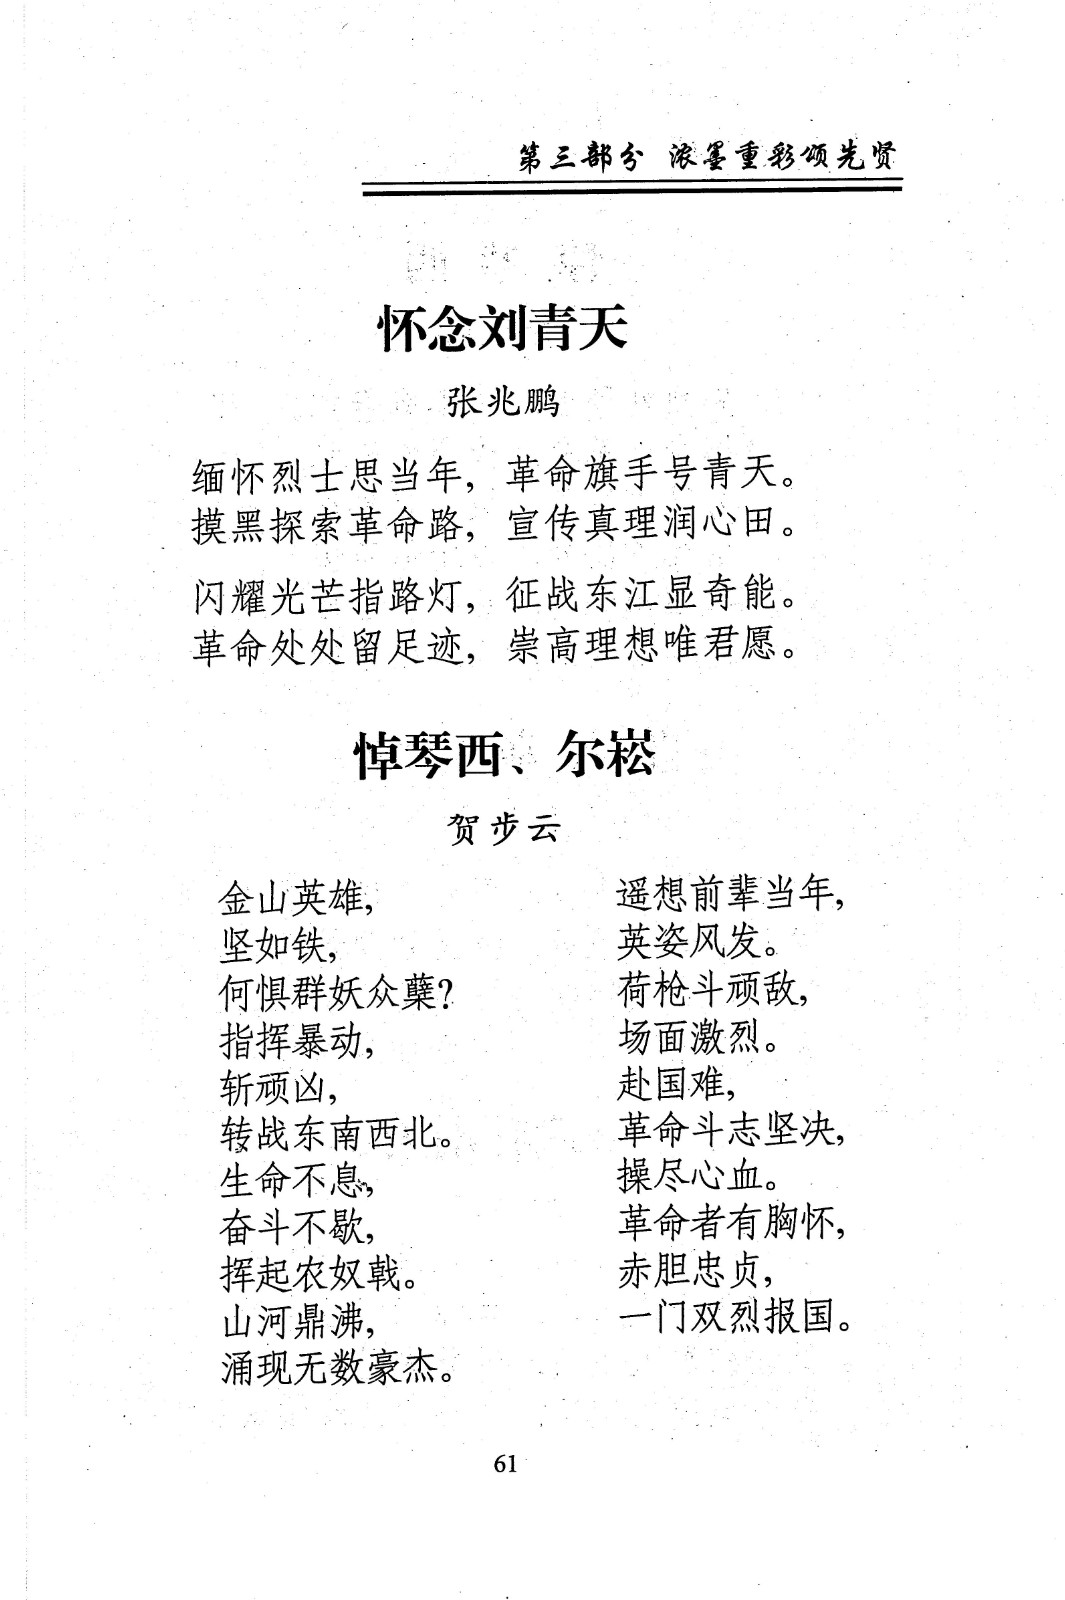 第三部分 浓墨重彩颂先贤
怀念刘青天
张兆鹏
缅怀烈士思当年，革命旗手号青天。
摸黑探索革命路，宣传真理润心田。
闪耀光芒指路灯，征战东江显奇能。
革命处处留足迹，崇高理想唯君愿。
悼琴西、尔崧
贺步云
金山英雄，
坚如铁，
何惧群妖众蘖？
指挥暴动，
斩顽凶，
转战东南西北。
生命不息，
奋斗不歇，
挥起农奴戟。
山河鼎沸，
涌现无数豪杰。
遥想前辈当年，
英姿风发。
荷枪斗顽敌，
场面激烈。
赴国难，
革命斗志坚决，
操尽心血。
革命者有胸怀，
赤胆忠贞，
一门双烈报国。
61